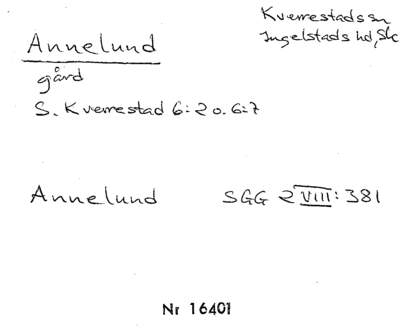 Annelund
Kverrestads sn
Ingelstads hd, Sk
gård
S. Kverrestad 6:2 o. 6:7
Annelund SGG 2 VIII: 381
Nr 16401